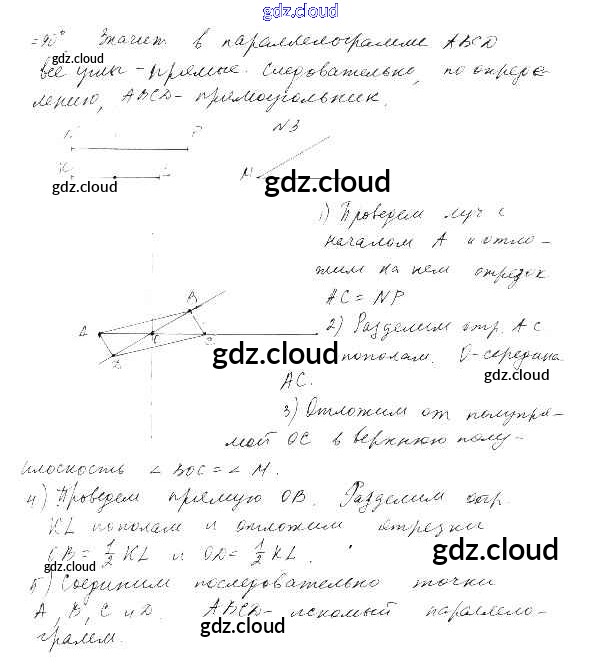 gdz.cloud
=90° Значит в параллелограмме ABCD
gdz.cloud
все углы - прямые. Следовательно, по опреде-
лению, ABCD - прямоугольник.
gdz.cloud
N3
K L
M
gdz.cloud
1) Проведем луч с
началом A и отло-
gdz.cloud
жим на нем отрезок
AC = NP
A B C D
2) Разделим отр. AC
gdz.cloud
пополам. O-середина
gdz.cloud
AC.
3) Отложим от полупря-
мой OC в верхнюю полу-
плоскость ∠BOC = ∠M.
4) Проведем прямую OB. Разделим отр.
gdz.cloud
KL пополам и отложим отрезки
OB = 1/2 KL и OD = 1/2 KL.
gdz.cloud
gdz.cloud
5) Соединим последовательно точки
A, B, C и D. ABCD - искомый параллело-
gdz.cloud
грамм.
gdz.cloud